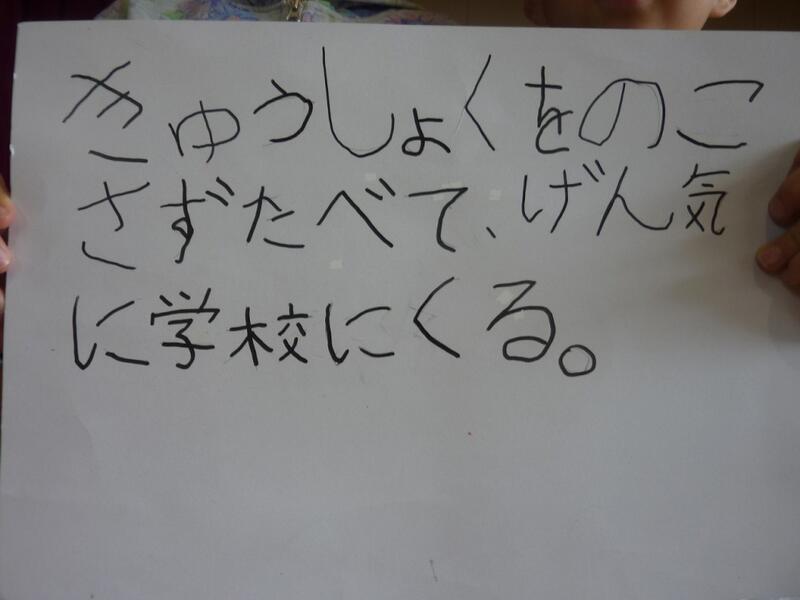 きゅうしょくをのこ
さずたべて、げん気
に学校にくる。